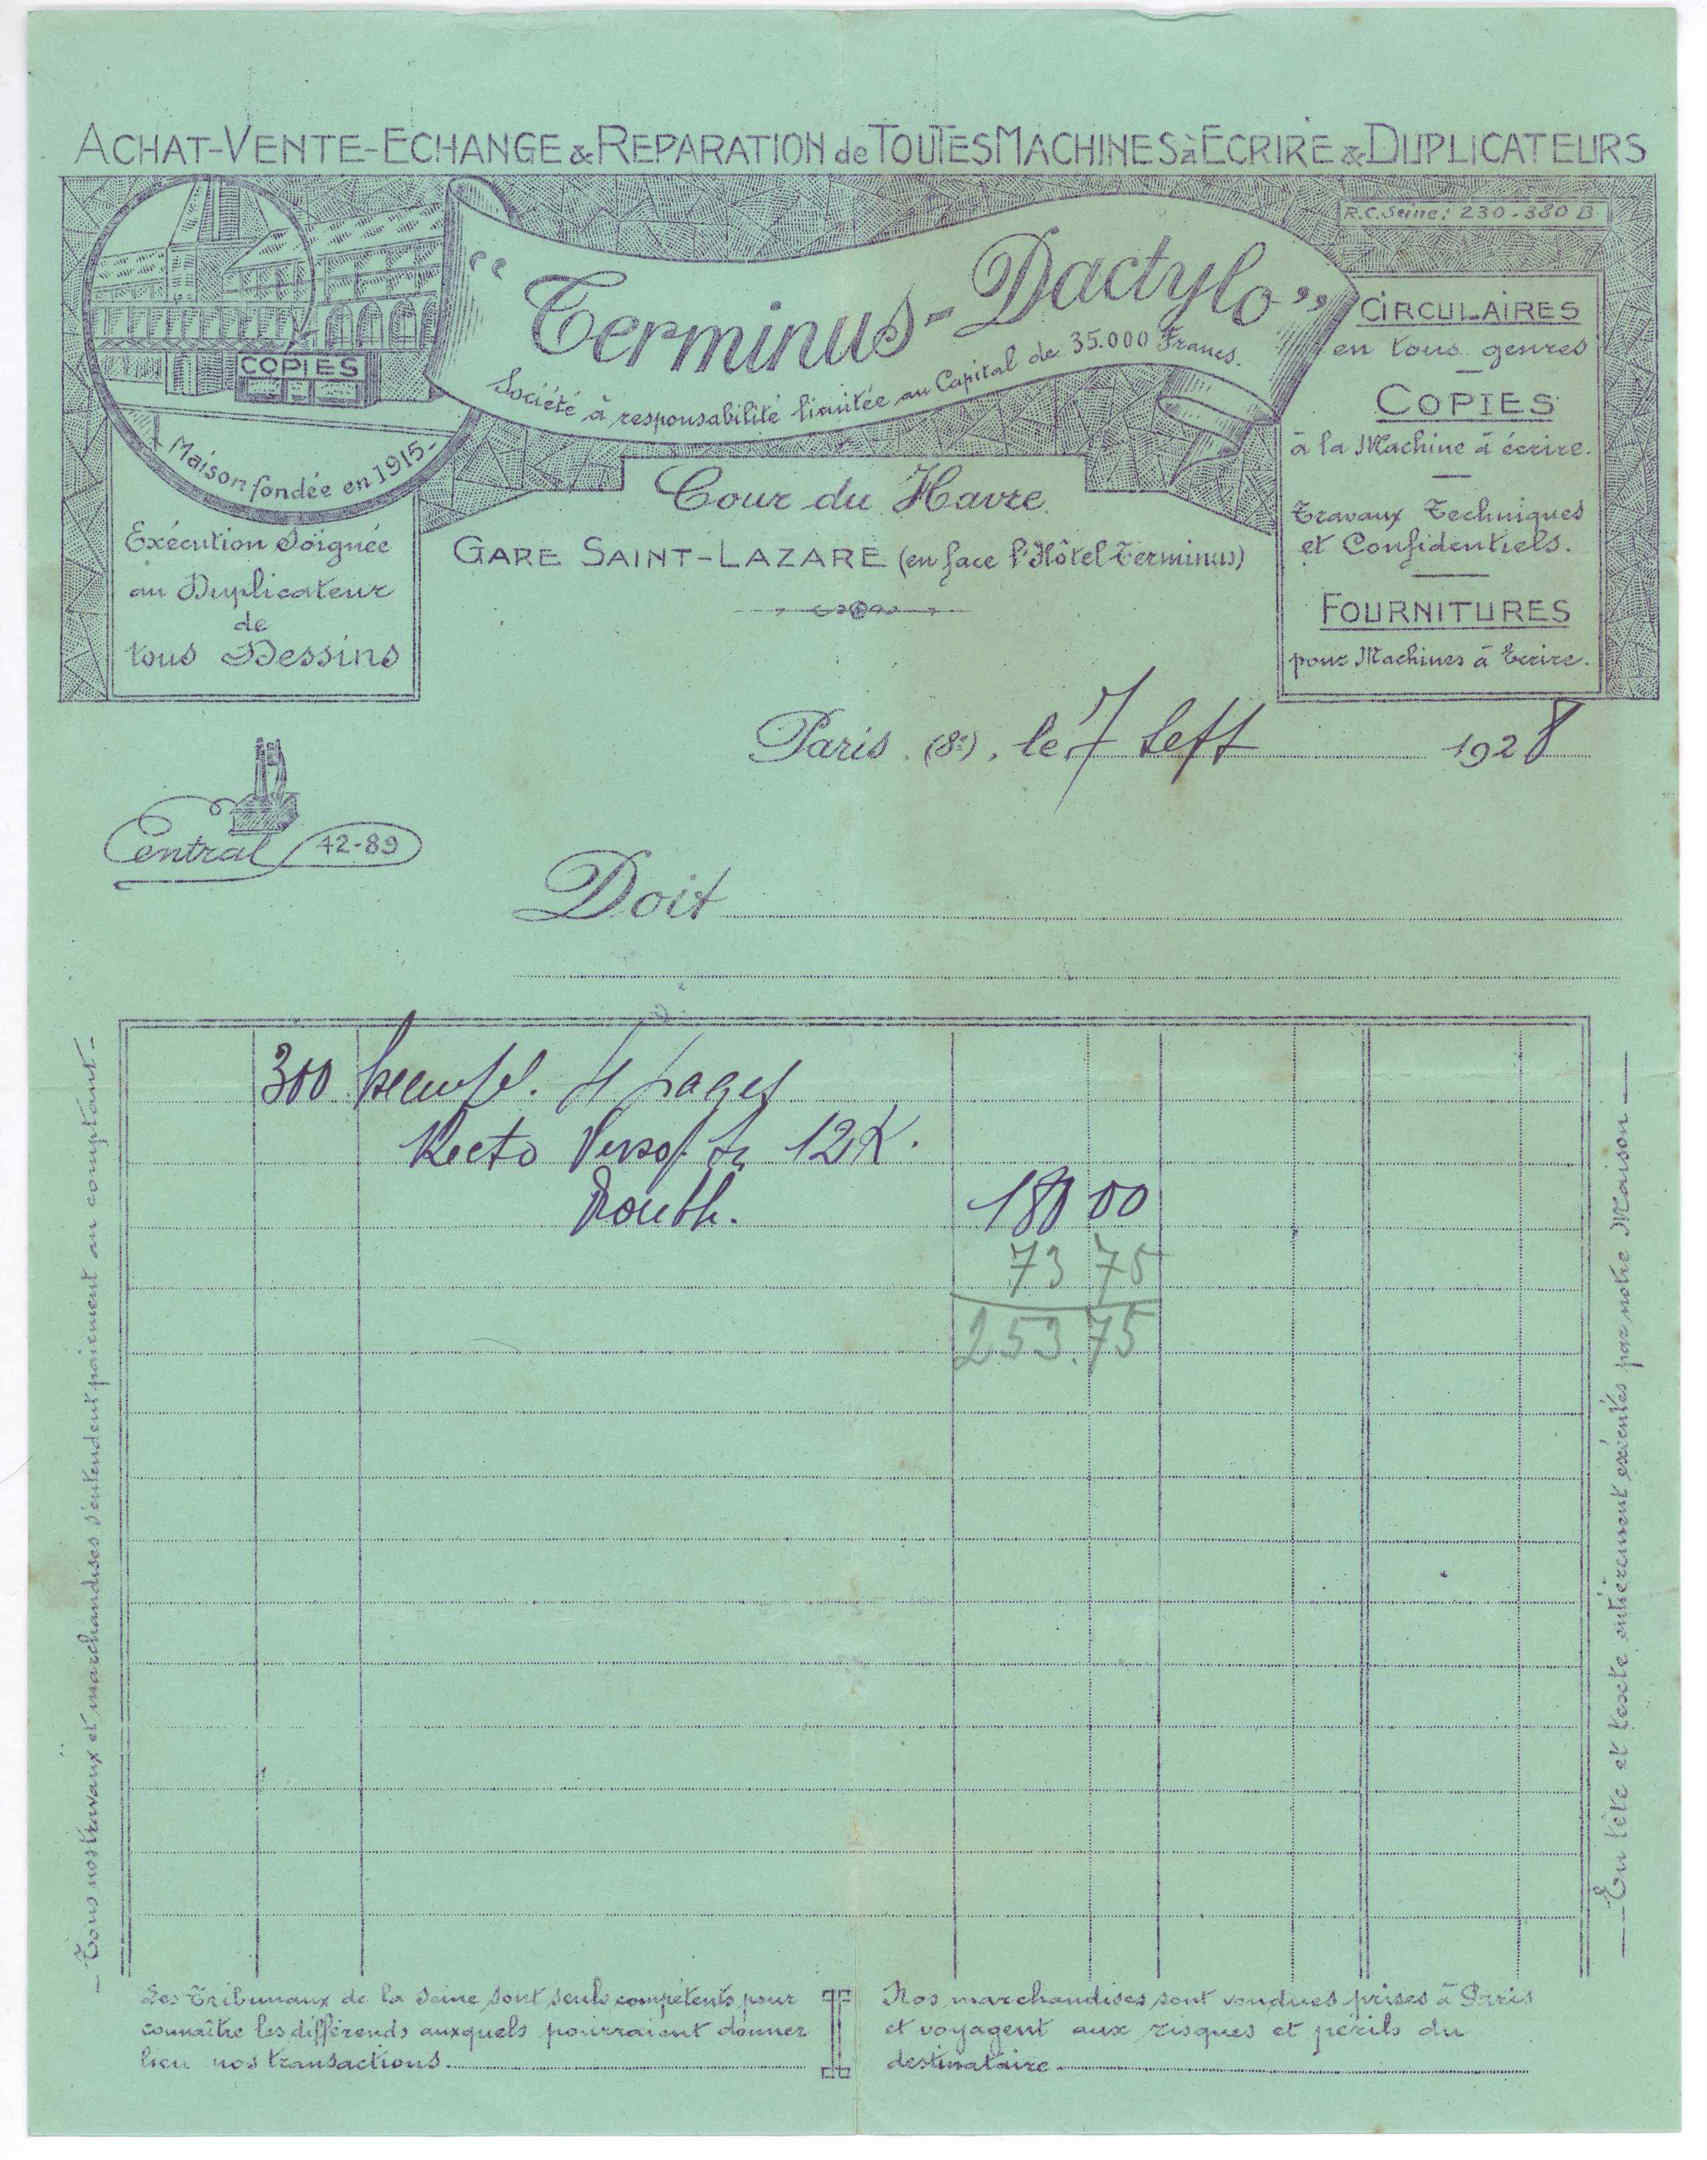 ACHAT-VENTE-ECHANGE & REPARATION de TOUTES MACHINES à ECRIRE & DUPLICATEURS
R.C. Seine: 230-380 B
"Terminus-Dactylo"
Société à responsabilité limitée au Capital de 35.000 Francs.
COPIES
Maison fondée en 1915-
Exécution Soignée
au Duplicateur
de
tous Dessins
Cour du Havre
GARE SAINT-LAZARE (en face l'Hôtel Terminus)
CIRCULAIRES
en tous genres
COPIES
à la Machine à écrire.
Travaux Techniques
et Confidentiels.
FOURNITURES
pour Machines à Ecrire.
Paris (8e), le 7 Sept 1928
Central 42-89
Doit
300 4 pages
Recto Verso 12K.
180 00
73 75
253.75
- Tous nos travaux et marchandises s'entendent paiement au comptant -
En tête et texte entièrement exécutés par notre Maison
Les Tribunaux de la Seine sont seuls compétents pour
connaître les différends auxquels pourraient donner
lieu nos transactions.
Nos marchandises sont vendues prises à Paris
et voyagent aux risques et périls du
destinataire